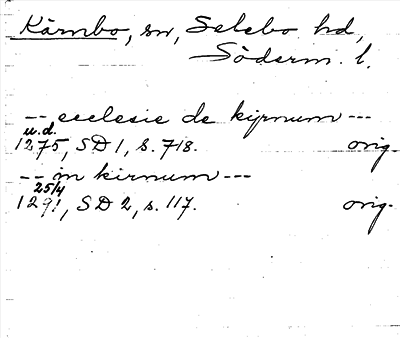 Kärnbo, sn, Selebo hd,
Söderm. l.
-- ecclesie de kyrnum ---
u.d.
1275, SD 1, s. 718. orig.
-- in kirnum ---
25/4
1291, SD 2, s. 117. orig.